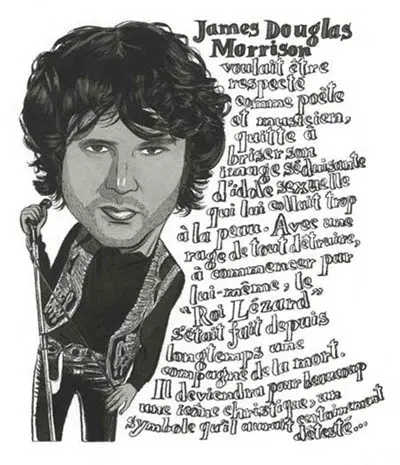 James Douglas
Morrison
voulait être
respecté
comme poète
et musicien,
quitte à
briser son
image séduisante
d'idole sexuelle
qui lui collait trop
à la peau. Avec une
rage de tout détruire,
à commencer par
lui-même, le
"Roi Lézard"
s'était fait depuis
longtemps une
compagne de la mort.
Il deviendra pour beaucoup
une icône christique, un
symbole qu'il aurait certainement
détesté...